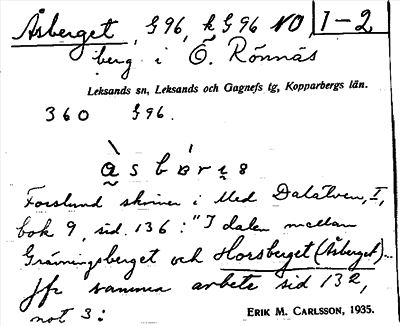 Åsberget, G96, k G96 NO 1-2
berg i Ö. Rönnäs
Leksands sn, Leksands och Gagnefs tg, Kopparbergs län.
360 G96.
Forslund skriver i Med Dalälven, I,
bok 9, sid. 136: "I dalen mellan
Gräsningsberget och Horsberget (Åsberget)...
Jfr samma arbete sid 132,
not 3:
ERIK M. CARLSSON, 1935.